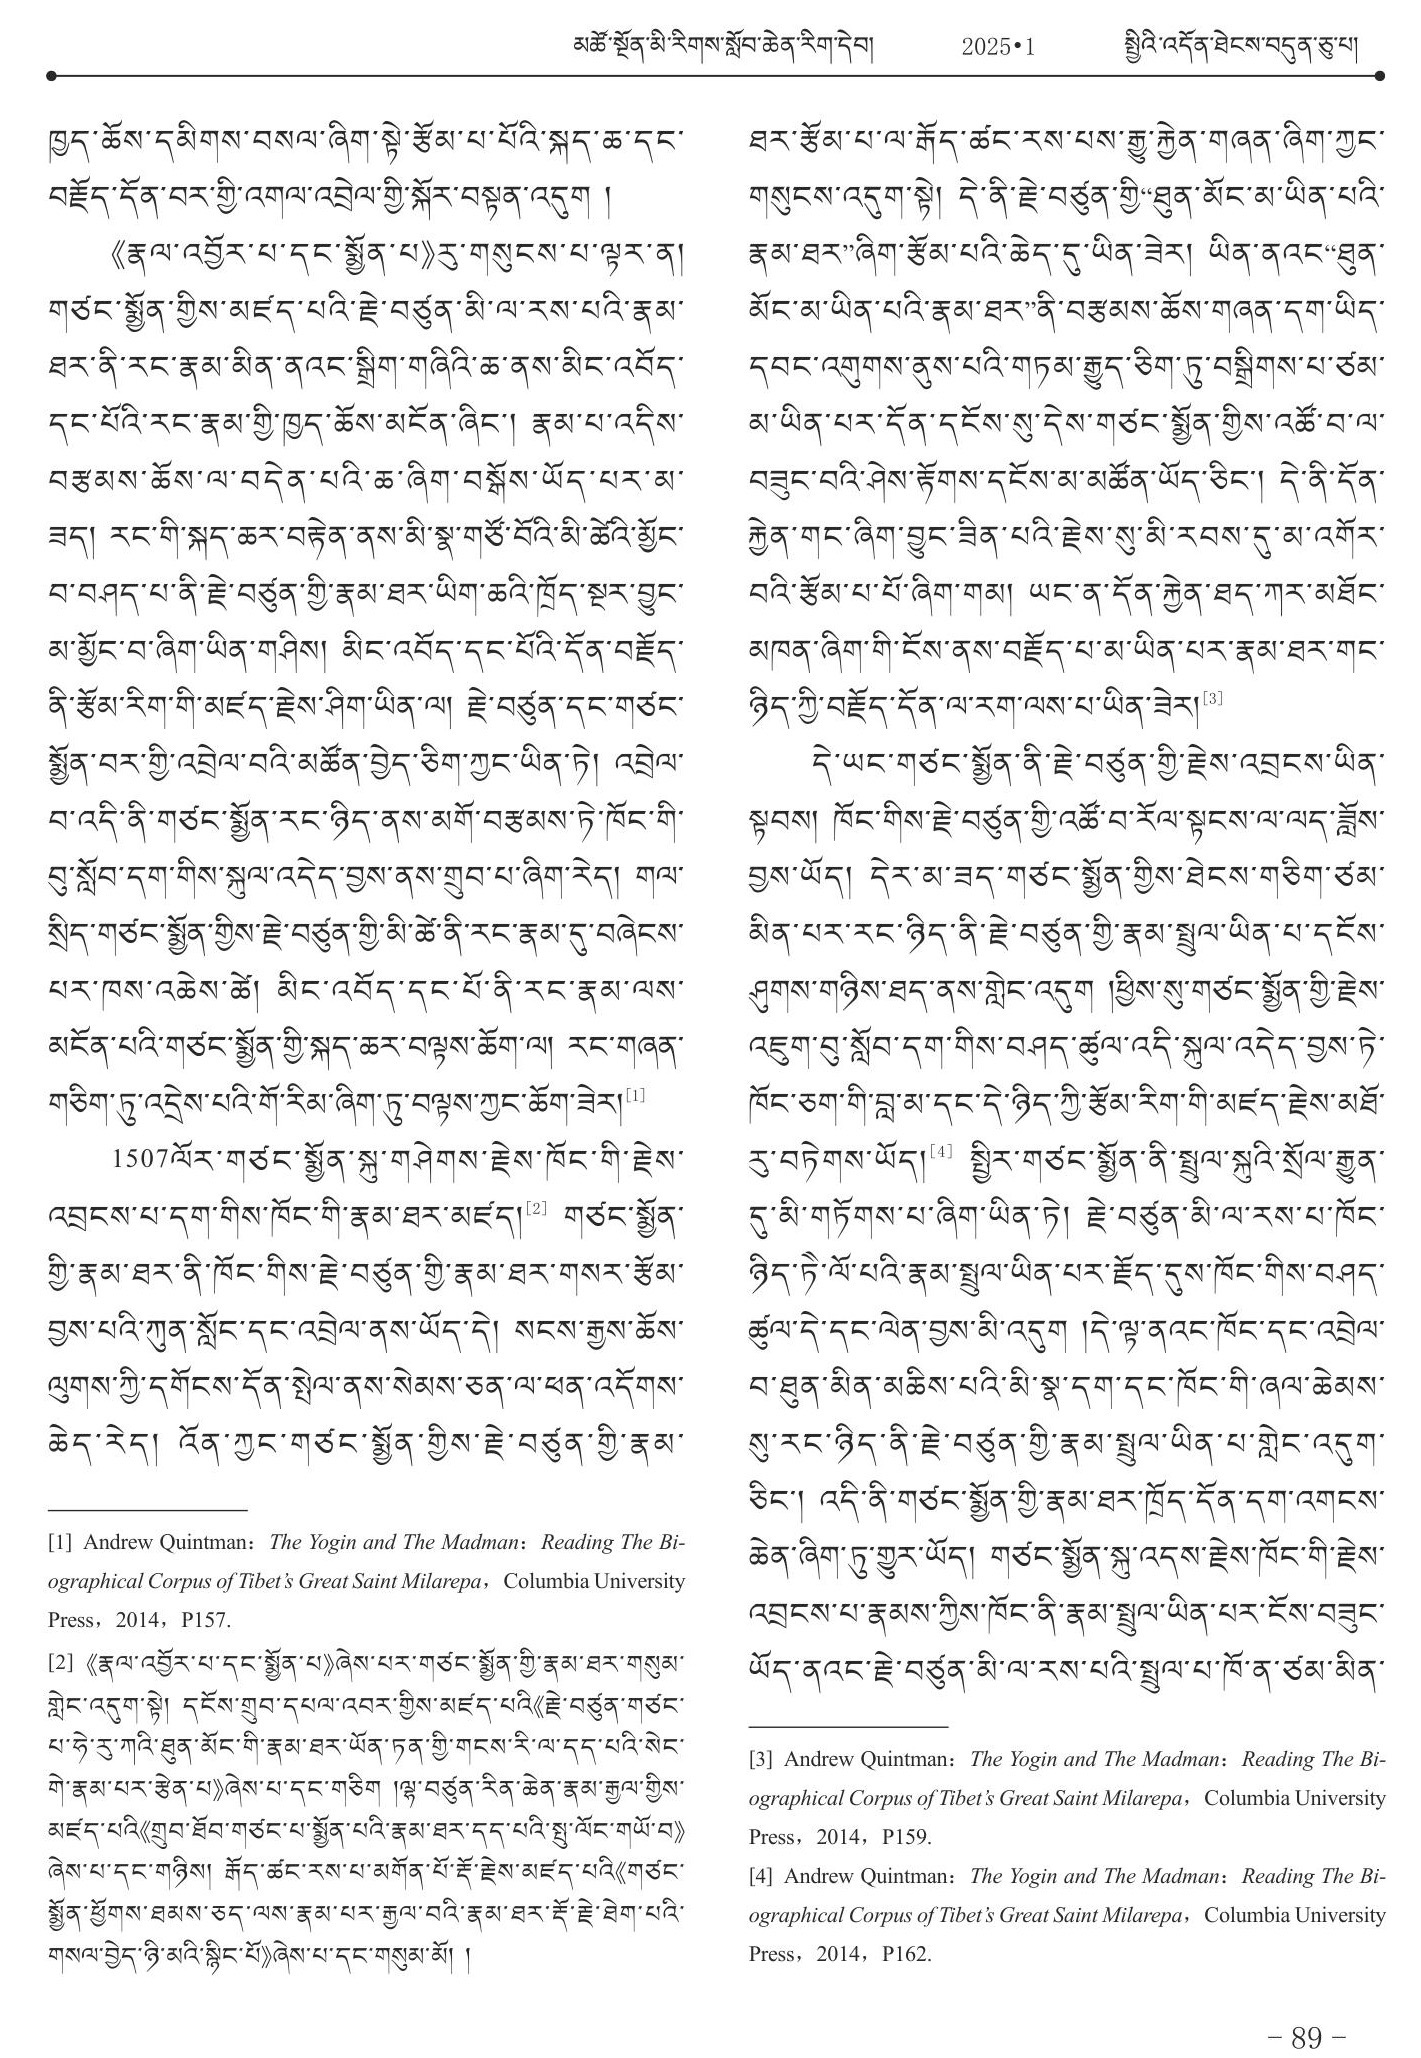 མཚོ་སྔོན་མི་རིགས་སློབ་ཆེན་རིག་དེབ།	2025•1	སྤྱིའི་འདོན་ཐེངས་བདུན་ཅུ་པ།
ཁྱད་ཆོས་དམིགས་བསལ་ཞིག་སྟེ་རྩོམ་པ་པོའི་སྐད་ཆ་དང་
བརྗོད་དོན་བར་གྱི་འགལ་འབྲེལ་གྱི་སྐོར་བསྟན་འདུག །
《རྣལ་འབྱོར་པ་དང་སྨྱོན་པ》རུ་གསུངས་པ་ལྟར་ན།
གཙང་སྨྱོན་གྱིས་མཛད་པའི་རྗེ་བཙུན་མི་ལ་རས་པའི་རྣམ་
ཐར་ནི་རང་རྣམ་མིན་ནའང་སྒྲིག་གཞིའི་ཆ་ནས་མིང་འབོད་
དང་པོའི་རང་རྣམ་གྱི་ཁྱད་ཆོས་མངོན་ཞིང་། རྣམ་པ་འདིས་
བརྩམས་ཆོས་ལ་བདེན་པའི་ཆ་ཞིག་བསྒོས་ཡོད་པར་མ་
ཟད། རང་གི་སྐད་ཆར་བརྟེན་ནས་མི་སྣ་གཙོ་བོའི་མི་ཚེའི་མྱོང་
བ་བཤད་པ་ནི་རྗེ་བཙུན་གྱི་རྣམ་ཐར་ཡིག་ཆའི་ཁྲོད་སྔར་བྱུང་
མ་མྱོང་བ་ཞིག་ཡིན་གཤིས། མིང་འབོད་དང་པོའི་དོན་བརྗོད་
ནི་རྩོམ་རིག་གི་མཛད་རྗེས་ཤིག་ཡིན་ལ། རྗེ་བཙུན་དང་གཙང་
སྨྱོན་བར་གྱི་འབྲེལ་བའི་མཚོན་བྱེད་ཅིག་ཀྱང་ཡིན་ཏེ། འབྲེལ་
བ་འདི་ནི་གཙང་སྨྱོན་རང་ཉིད་ནས་མགོ་བརྩམས་ཏེ་ཁོང་གི་
བུ་སློབ་དག་གིས་སྐུལ་འདེད་བྱས་ནས་གྲུབ་པ་ཞིག་རེད། གལ་
སྲིད་གཙང་སྨྱོན་གྱིས་རྗེ་བཙུན་གྱི་མི་ཚེ་ནི་རང་རྣམ་དུ་བཞེངས་
པར་ཁས་འཆེས་ཚེ། མིང་འབོད་དང་པོ་ནི་རང་རྣམ་ལས་
མངོན་པའི་གཙང་སྨྱོན་གྱི་སྐད་ཆར་བལྟས་ཆོག་ལ། རང་གཞན་
གཅིག་ཏུ་འདྲེས་པའི་གོ་རིམ་ཞིག་ཏུ་བལྟས་ཀྱང་ཆོག་ཟེར།[1]
1507ལོར་གཙང་སྨྱོན་སྐུ་གཤེགས་རྗེས་ཁོང་གི་རྗེས་
འབྲངས་པ་དག་གིས་ཁོང་གི་རྣམ་ཐར་མཛད།[2] གཙང་སྨྱོན་
གྱི་རྣམ་ཐར་ནི་ཁོང་གིས་རྗེ་བཙུན་གྱི་རྣམ་ཐར་གསར་རྩོམ་
བྱས་པའི་ཀུན་སློང་དང་འབྲེལ་ནས་ཡོད་དེ། སངས་རྒྱས་ཆོས་
ལུགས་ཀྱི་དགོངས་དོན་སྤེལ་ནས་སེམས་ཅན་ལ་ཕན་འདོགས་
ཆེད་རེད། འོན་ཀྱང་གཙང་སྨྱོན་གྱིས་རྗེ་བཙུན་གྱི་རྣམ་
[1] Andrew Quintman：The Yogin and The Madman：Reading The Bi-
ographical Corpus of Tibet’s Great Saint Milarepa，Columbia University
Press，2014，P157.
[2] 《རྣལ་འབྱོར་པ་དང་སྨྱོན་པ》ཞེས་པར་གཙང་སྨྱོན་གྱི་རྣམ་ཐར་གསུམ་
གླེང་འདུག་སྟེ། དངོས་གྲུབ་དཔལ་འབར་གྱིས་མཛད་པའི《རྗེ་བཙུན་གཙང་
པ་ཧེ་རུ་ཀའི་ཐུན་མོང་གི་རྣམ་ཐར་ཡོན་ཏན་གྱི་གངས་རི་ལ་དད་པའི་སེང་
གེ་རྣམ་པར་རྩེན་པ》ཞེས་པ་དང་གཅིག །ལྷ་བཙུན་རིན་ཆེན་རྣམ་རྒྱལ་གྱིས་
མཛད་པའི《གྲུབ་ཐོབ་གཙང་པ་སྨྱོན་པའི་རྣམ་ཐར་དད་པའི་སྤུ་ལོང་གཡོ་བ》
ཞེས་པ་དང་གཉིས། རྒོད་ཚང་རས་པ་མགོན་པོ་རྡོ་རྗེས་མཛད་པའི《གཙང་
སྨྱོན་ཕྱོགས་ཐམས་ཅད་ལས་རྣམ་པར་རྒྱལ་བའི་རྣམ་ཐར་རྡོ་རྗེ་ཐེག་པའི་
གསལ་བྱེད་ཉི་མའི་སྙིང་པོ》ཞེས་པ་དང་གསུམ་མོ། །
ཐར་རྩོམ་པ་ལ་རྒོད་ཚང་རས་པས་རྒྱུ་རྐྱེན་གཞན་ཞིག་ཀྱང་
གསུངས་འདུག་སྟེ། དེ་ནི་རྗེ་བཙུན་གྱི“ཐུན་མོང་མ་ཡིན་པའི་
རྣམ་ཐར”ཞིག་རྩོམ་པའི་ཆེད་དུ་ཡིན་ཟེར། ཡིན་ནའང“ཐུན་
མོང་མ་ཡིན་པའི་རྣམ་ཐར”ནི་བརྩམས་ཆོས་གཞན་དག་ཡིད་
དབང་འགུགས་ནུས་པའི་གཏམ་རྒྱུད་ཅིག་ཏུ་བསྒྲིགས་པ་ཙམ་
མ་ཡིན་པར་དོན་དངོས་སུ་དེས་གཙང་སྨྱོན་གྱིས་འཚོ་བ་ལ་
བཟུང་བའི་ཤེས་རྟོགས་དངོས་མ་མཚོན་ཡོད་ཅིང་། དེ་ནི་དོན་
རྐྱེན་གང་ཞིག་བྱུང་ཟིན་པའི་རྗེས་སུ་མི་རབས་དུ་མ་འགོར་
བའི་རྩོམ་པ་པོ་ཞིག་གམ། ཡང་ན་དོན་རྐྱེན་ཐད་ཀར་མཐོང་
མཁན་ཞིག་གི་ངོས་ནས་བརྗོད་པ་མ་ཡིན་པར་རྣམ་ཐར་གང་
ཉིད་ཀྱི་བརྗོད་དོན་ལ་རག་ལས་པ་ཡིན་ཟེར།[3]
དེ་ཡང་གཙང་སྨྱོན་ནི་རྗེ་བཙུན་གྱི་རྗེས་འབྲངས་ཡིན་
སྟབས། ཁོང་གིས་རྗེ་བཙུན་གྱི་འཚོ་བ་རོལ་སྟངས་ལ་ལད་ཟློས་
བྱས་ཡོད། དེར་མ་ཟད་གཙང་སྨྱོན་གྱིས་ཐེངས་གཅིག་ཙམ་
མིན་པར་རང་ཉིད་ནི་རྗེ་བཙུན་གྱི་རྣམ་སྤྲུལ་ཡིན་པ་དངོས་
ཤུགས་གཉིས་ཐད་ནས་གླེང་འདུག །ཕྱིས་སུ་གཙང་སྨྱོན་གྱི་རྗེས་
འཇུག་བུ་སློབ་དག་གིས་བཤད་ཚུལ་འདི་སྐུལ་འདེད་བྱས་ཏེ་
ཁོང་ཅག་གི་བླ་མ་དང་དེ་ཉིད་ཀྱི་རྩོམ་རིག་གི་མཛད་རྗེས་མཐོ་
རུ་བཏེགས་ཡོད།[4] སྤྱིར་གཙང་སྨྱོན་ནི་སྤྲུལ་སྐུའི་སྲོལ་རྒྱུན་
དུ་མི་གཏོགས་པ་ཞིག་ཡིན་ཏེ། རྗེ་བཙུན་མི་ལ་རས་པ་ཁོང་
ཉིད་ཏཻ་ལོ་པའི་རྣམ་སྤྲུལ་ཡིན་པར་རྗོད་དུས་ཁོང་གིས་བཤད་
ཚུལ་དེ་དང་ལེན་བྱས་མི་འདུག །དེ་ལྟ་ནའང་ཁོང་དང་འབྲེལ་
བ་ཐུན་མིན་མཆིས་པའི་མི་སྣ་དག་དང་ཁོང་གི་ཞལ་ཆེམས་
སུ་རང་ཉིད་ནི་རྗེ་བཙུན་གྱི་རྣམ་སྤྲུལ་ཡིན་པ་གླེང་འདུག་
ཅིང་། འདི་ནི་གཙང་སྨྱོན་གྱི་རྣམ་ཐར་ཁྲོད་དོན་དག་འགངས་
ཆེན་ཞིག་ཏུ་གྱུར་ཡོད། གཙང་སྨྱོན་སྐུ་འདས་རྗེས་ཁོང་གི་རྗེས་
འབྲངས་པ་རྣམས་ཀྱིས་ཁོང་ནི་རྣམ་སྤྲུལ་ཡིན་པར་ངོས་བཟུང་
ཡོད་ནའང་རྗེ་བཙུན་མི་ལ་རས་པའི་སྤྲུལ་པ་ཁོ་ན་ཙམ་མིན་
[3] Andrew Quintman：The Yogin and The Madman：Reading The Bi-
ographical Corpus of Tibet’s Great Saint Milarepa，Columbia University
Press，2014，P159.
[4] Andrew Quintman：The Yogin and The Madman：Reading The Bi-
ographical Corpus of Tibet’s Great Saint Milarepa，Columbia University
Press，2014，P162.
– 89 –